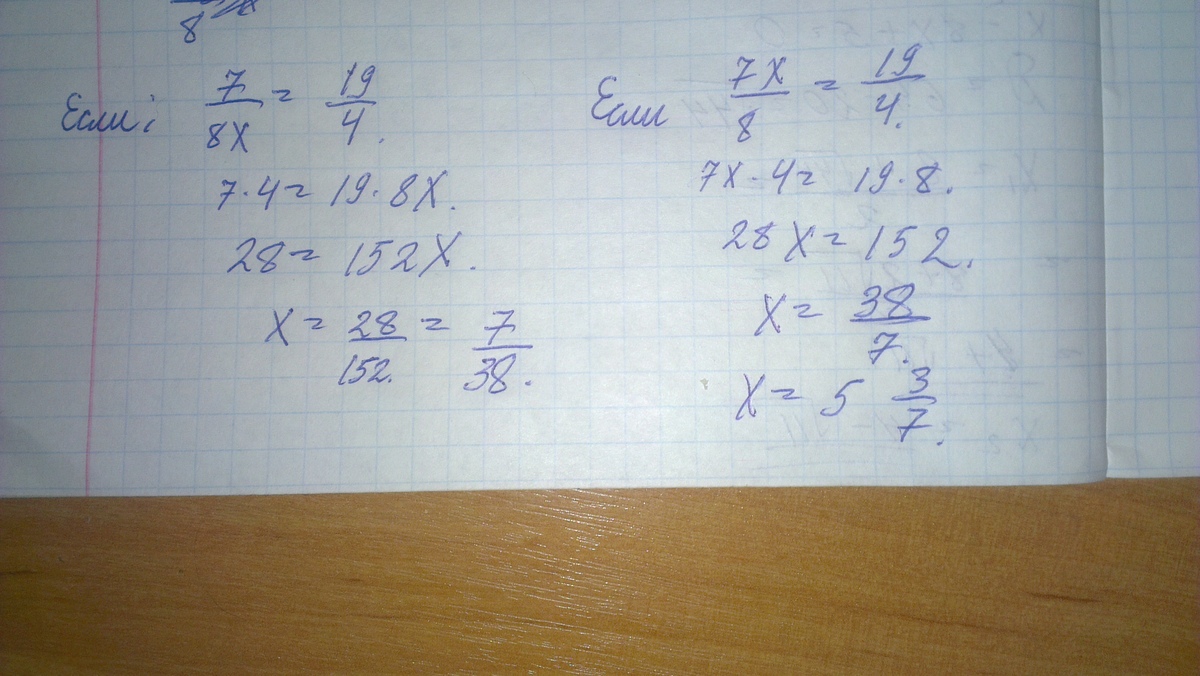 8
Если: 7/8X = 19/4.
7·4 = 19·8X.
28 = 152X.
X = 28/152. = 7/38.
Если 7X/8 = 19/4.
7X·4 = 19·8.
28X = 152.
X = 38/7.
X = 5 3/7.